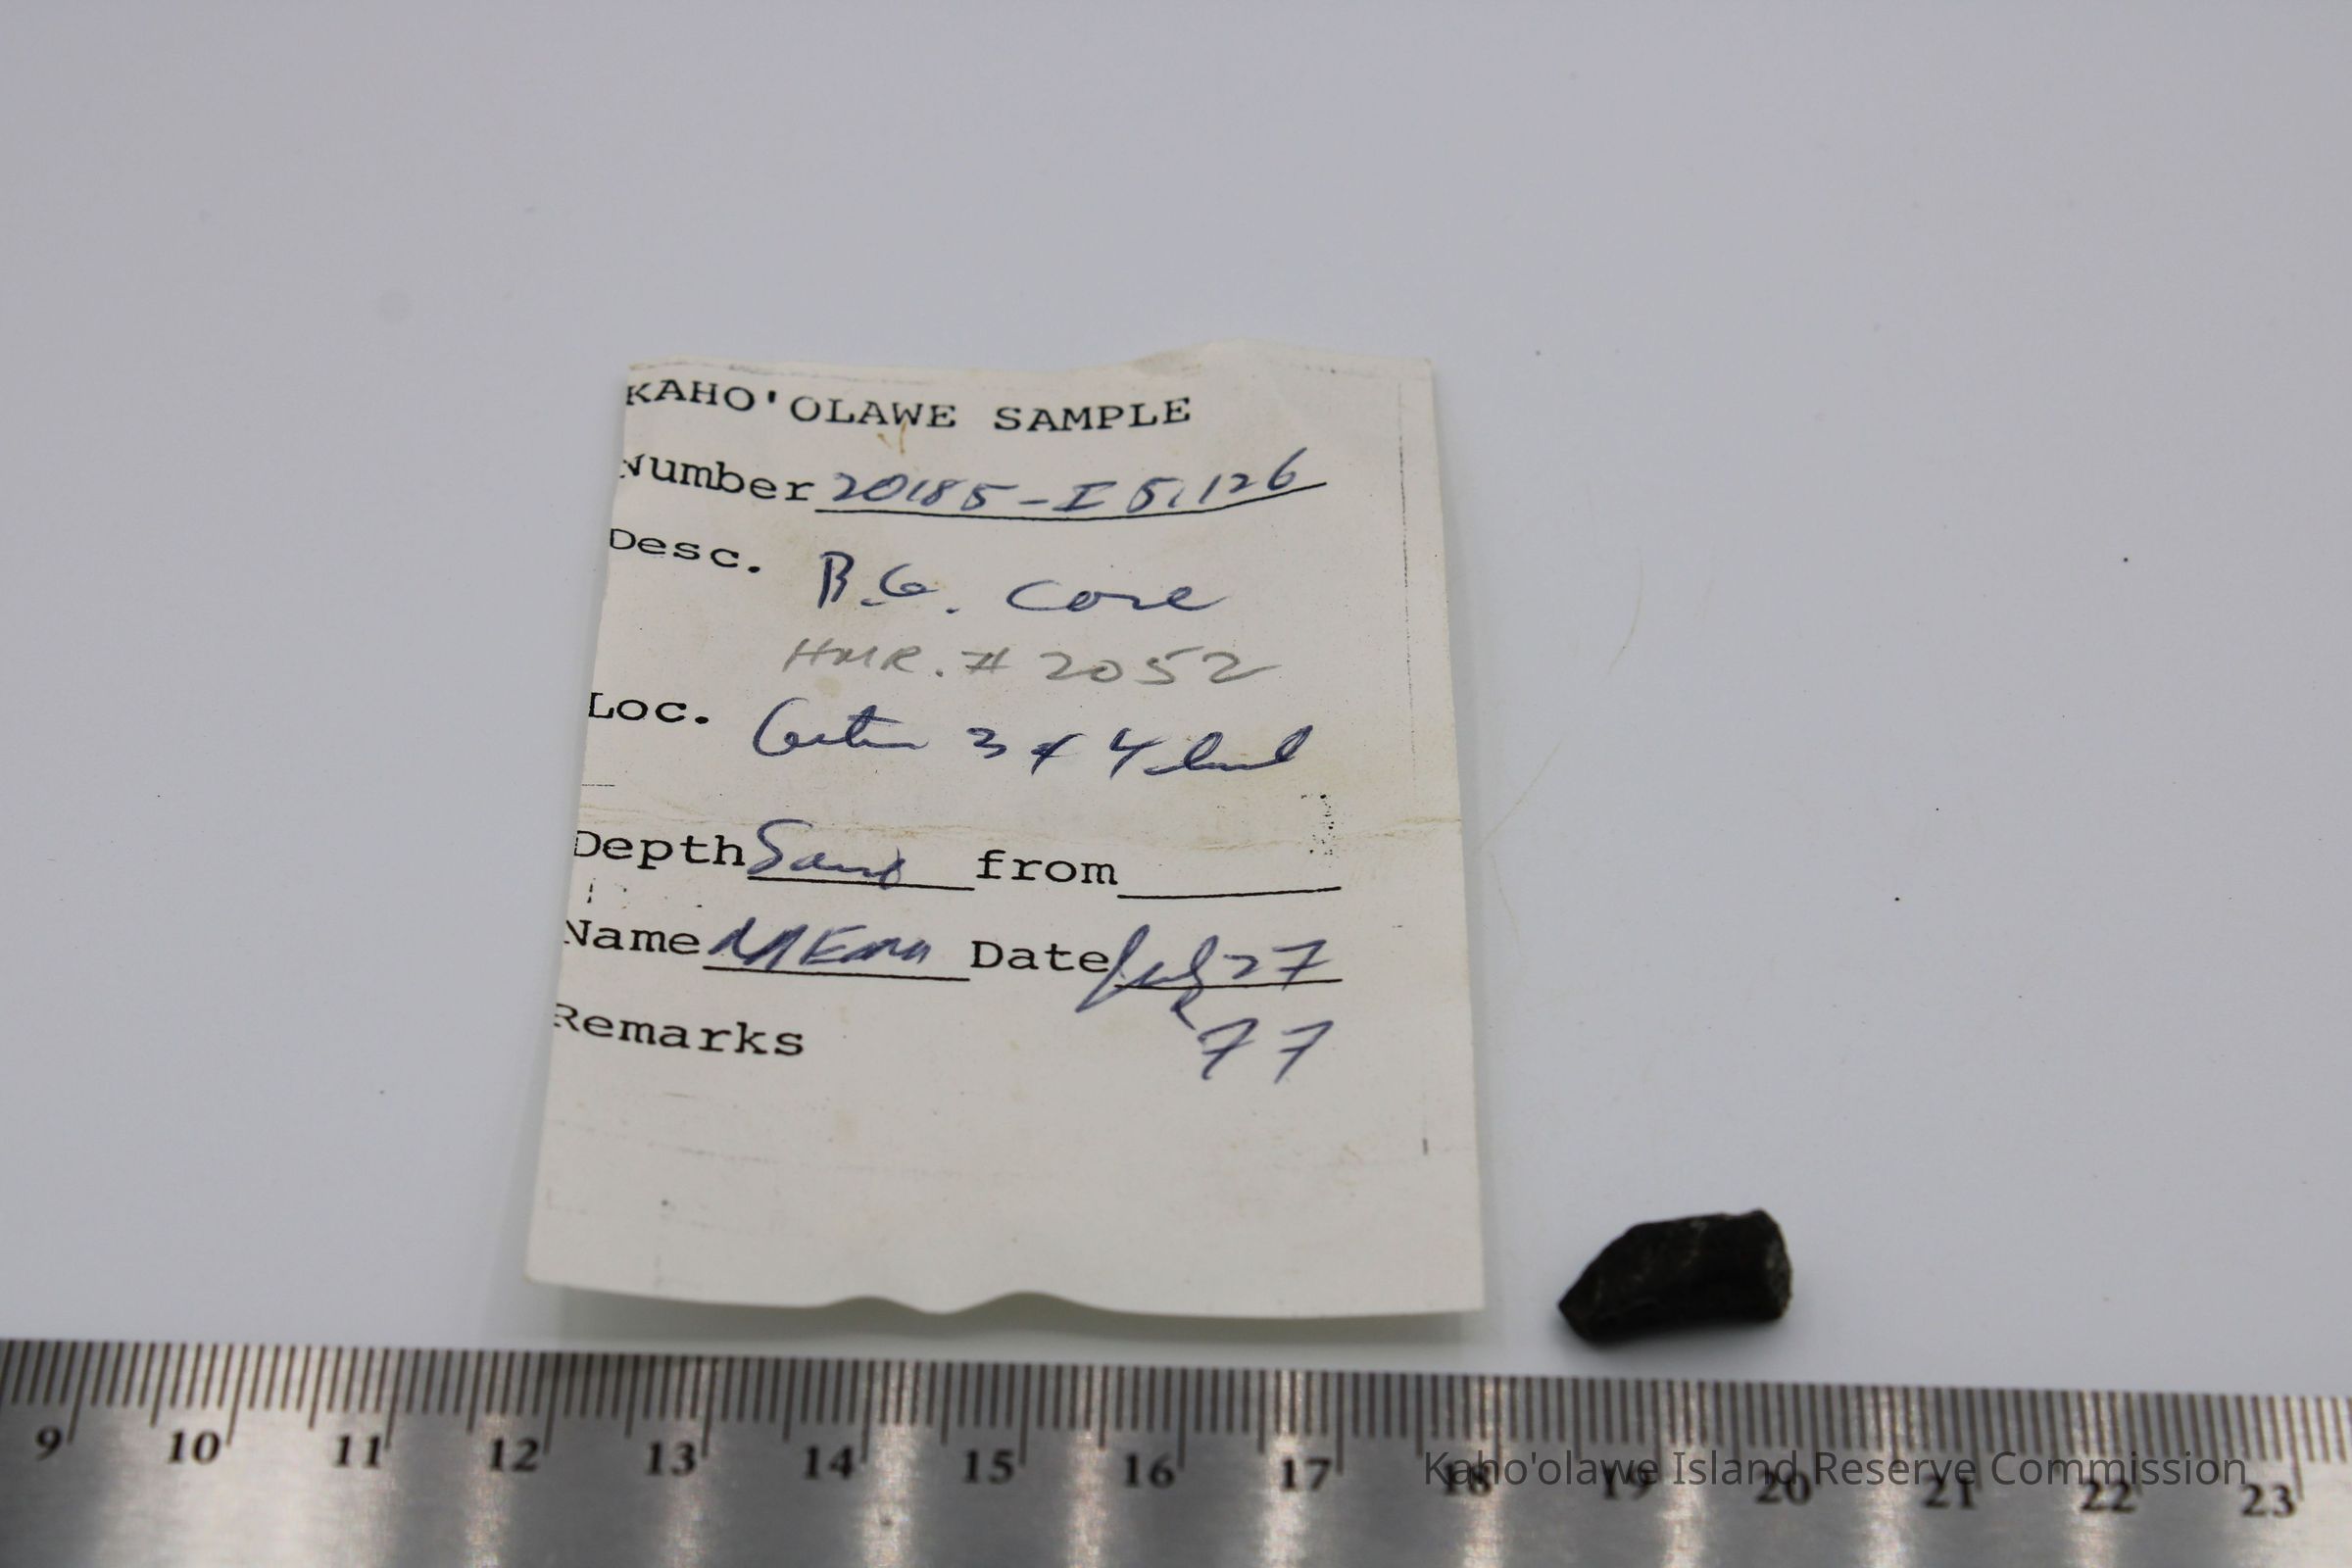 KAHO'OLAWE SAMPLE
Number 20185-I 5,126
Desc. B.G. Core
HMR. # 2052
Loc. 3 & 4
Depth Sand from
Name Date July 27
77
Remarks
9 10 11 12 13 14 15 16 17 18 19 20 21 22 23
Kaho'olawe Island Reserve Commission